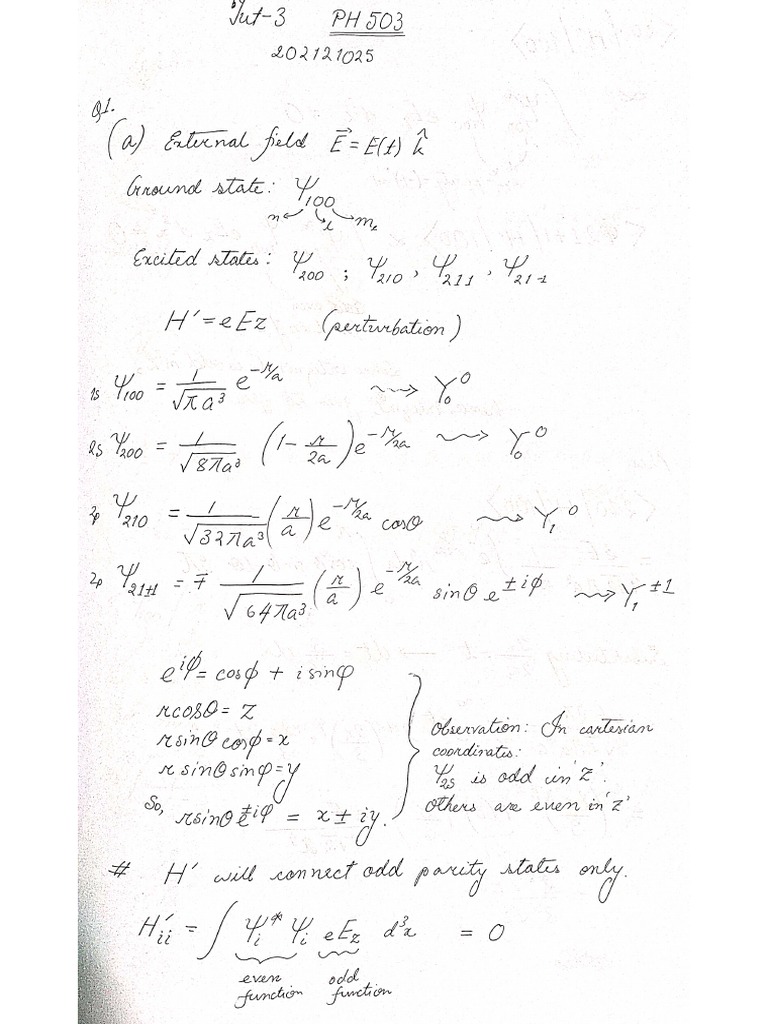 Tut-3 PH503
202121025
Q1.
(a) External field E⃗ = E(t) k̂
Ground state: Ψ₁₀₀
n l mₗ
Excited states: Ψ₂₀₀ ; Ψ₂₁₀ , Ψ₂₁₁ , Ψ₂₁₋₁
H′ = eEz (perturbation)
1s Ψ₁₀₀ = 1/√(πa³) e^(-r/a) ⇝ Y₀⁰
2s Ψ₂₀₀ = 1/√(8πa³) (1 - r/2a) e^(-r/2a) ⇝ Y₀⁰
2p Ψ₂₁₀ = 1/√(32πa³) (r/a) e^(-r/2a) cosθ ⇝ Y₁⁰
2p Ψ₂₁±₁ = ∓ 1/√(64πa³) (r/a) e^(-r/2a) sinθ e^(±iφ) ⇝ Y₁^(±1)
e^(iφ) = cosφ + i sinφ
r cosθ = z
r sinθ cosφ = x
r sinθ sinφ = y
So, r sinθ e^(±iφ) = x ± iy.
Observation: In cartesian
coordinates:
Ψ₂ₛ is odd in 'z'.
others are even in 'z'
# H′ will connect odd parity states only.
H′ᵢᵢ = ∫ Ψᵢ* Ψᵢ eEz d³x = 0
even function odd function